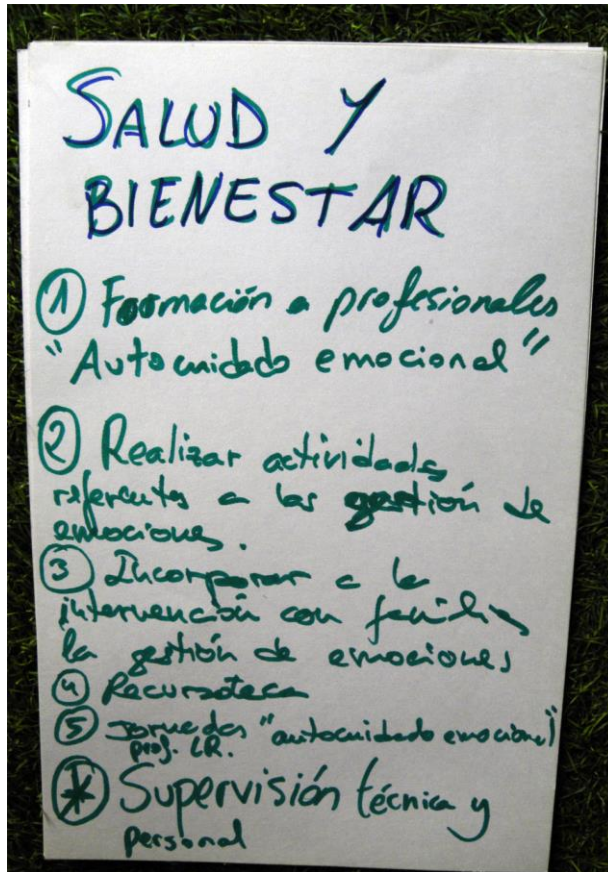 SALUD Y
BIENESTAR
① Formación a profesionales
"Autocuidado emocional"
② Realizar actividades
referentes a las gestión de
emociones.
③ Incorporar a la
intervención con familias
la gestión de emociones
④ Recursoteca
⑤ Jornadas "autocuidado emocional"
prof. LR.
* Supervisión técnica y
personal